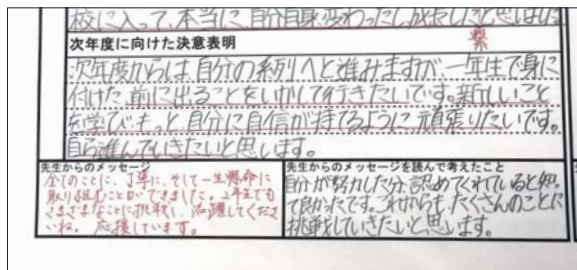 校に入って、本当に、自分自身、変わったし、成長したと思いました
次年度に向けた決意表明
繋
次年度からは、自分の系列へと進みますが、一年生で身に
付けた、前に出ることをいかして行きたいです。新しいこと
を学び、もっと、自分に自信が持てるように頑張りたいです。
自ら進んでいきたいと思います。
先生からのメッセージ
全てのことに、丁寧に、そして一生懸命に
取り組むことができました。2年生でも
さまざまなことに挑戦し、活躍してくださ
いね。応援しています。
先生からのメッセージを読んで考えたこと
自分が努力した分、認めてくれていると知れ
て良かったです。これからも、たくさんのことに
挑戦していきたいと思います。